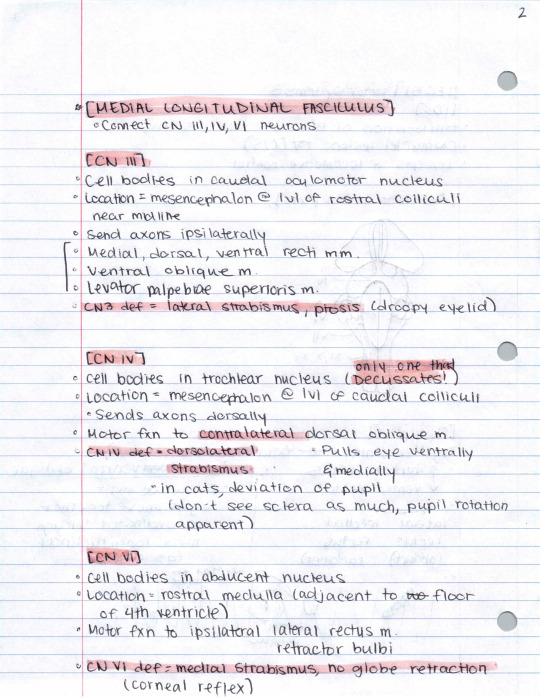 2
[MEDIAL LONGITUDINAL FASCICULUS]
Connect CN III, IV, VI neurons
[CN III]
Cell bodies in caudal oculomotor nucleus
Location = mesencephalon @ lvl of rostral colliculi
near midline
Send axons ipsilaterally
Medial, dorsal, ventral recti mm.
Ventral oblique m.
Levator palpebrae superioris m.
CN3 def = lateral strabismus, ptosis (droopy eyelid)
[CN IV]
only one that
Cell bodies in trochlear nucleus (DECUSSATES!)
Location = mesencephalon @ lvl of caudal colliculi
Sends axons dorsally
Motor fxn to contralateral dorsal oblique m.
CN IV def = dorsolateral
strabismus
Pulls eye ventrally
& medially
in cats, deviation of pupil
(don't see sclera as much, pupil rotation
apparent)
[CN VI]
Cell bodies in abducent nucleus
Location = rostral medulla (adjacent to floor
of 4th ventricle)
Motor fxn to ipsilateral lateral rectus m.
retractor bulbi
CN VI def = medial strabismus, no globe retraction
(corneal reflex)